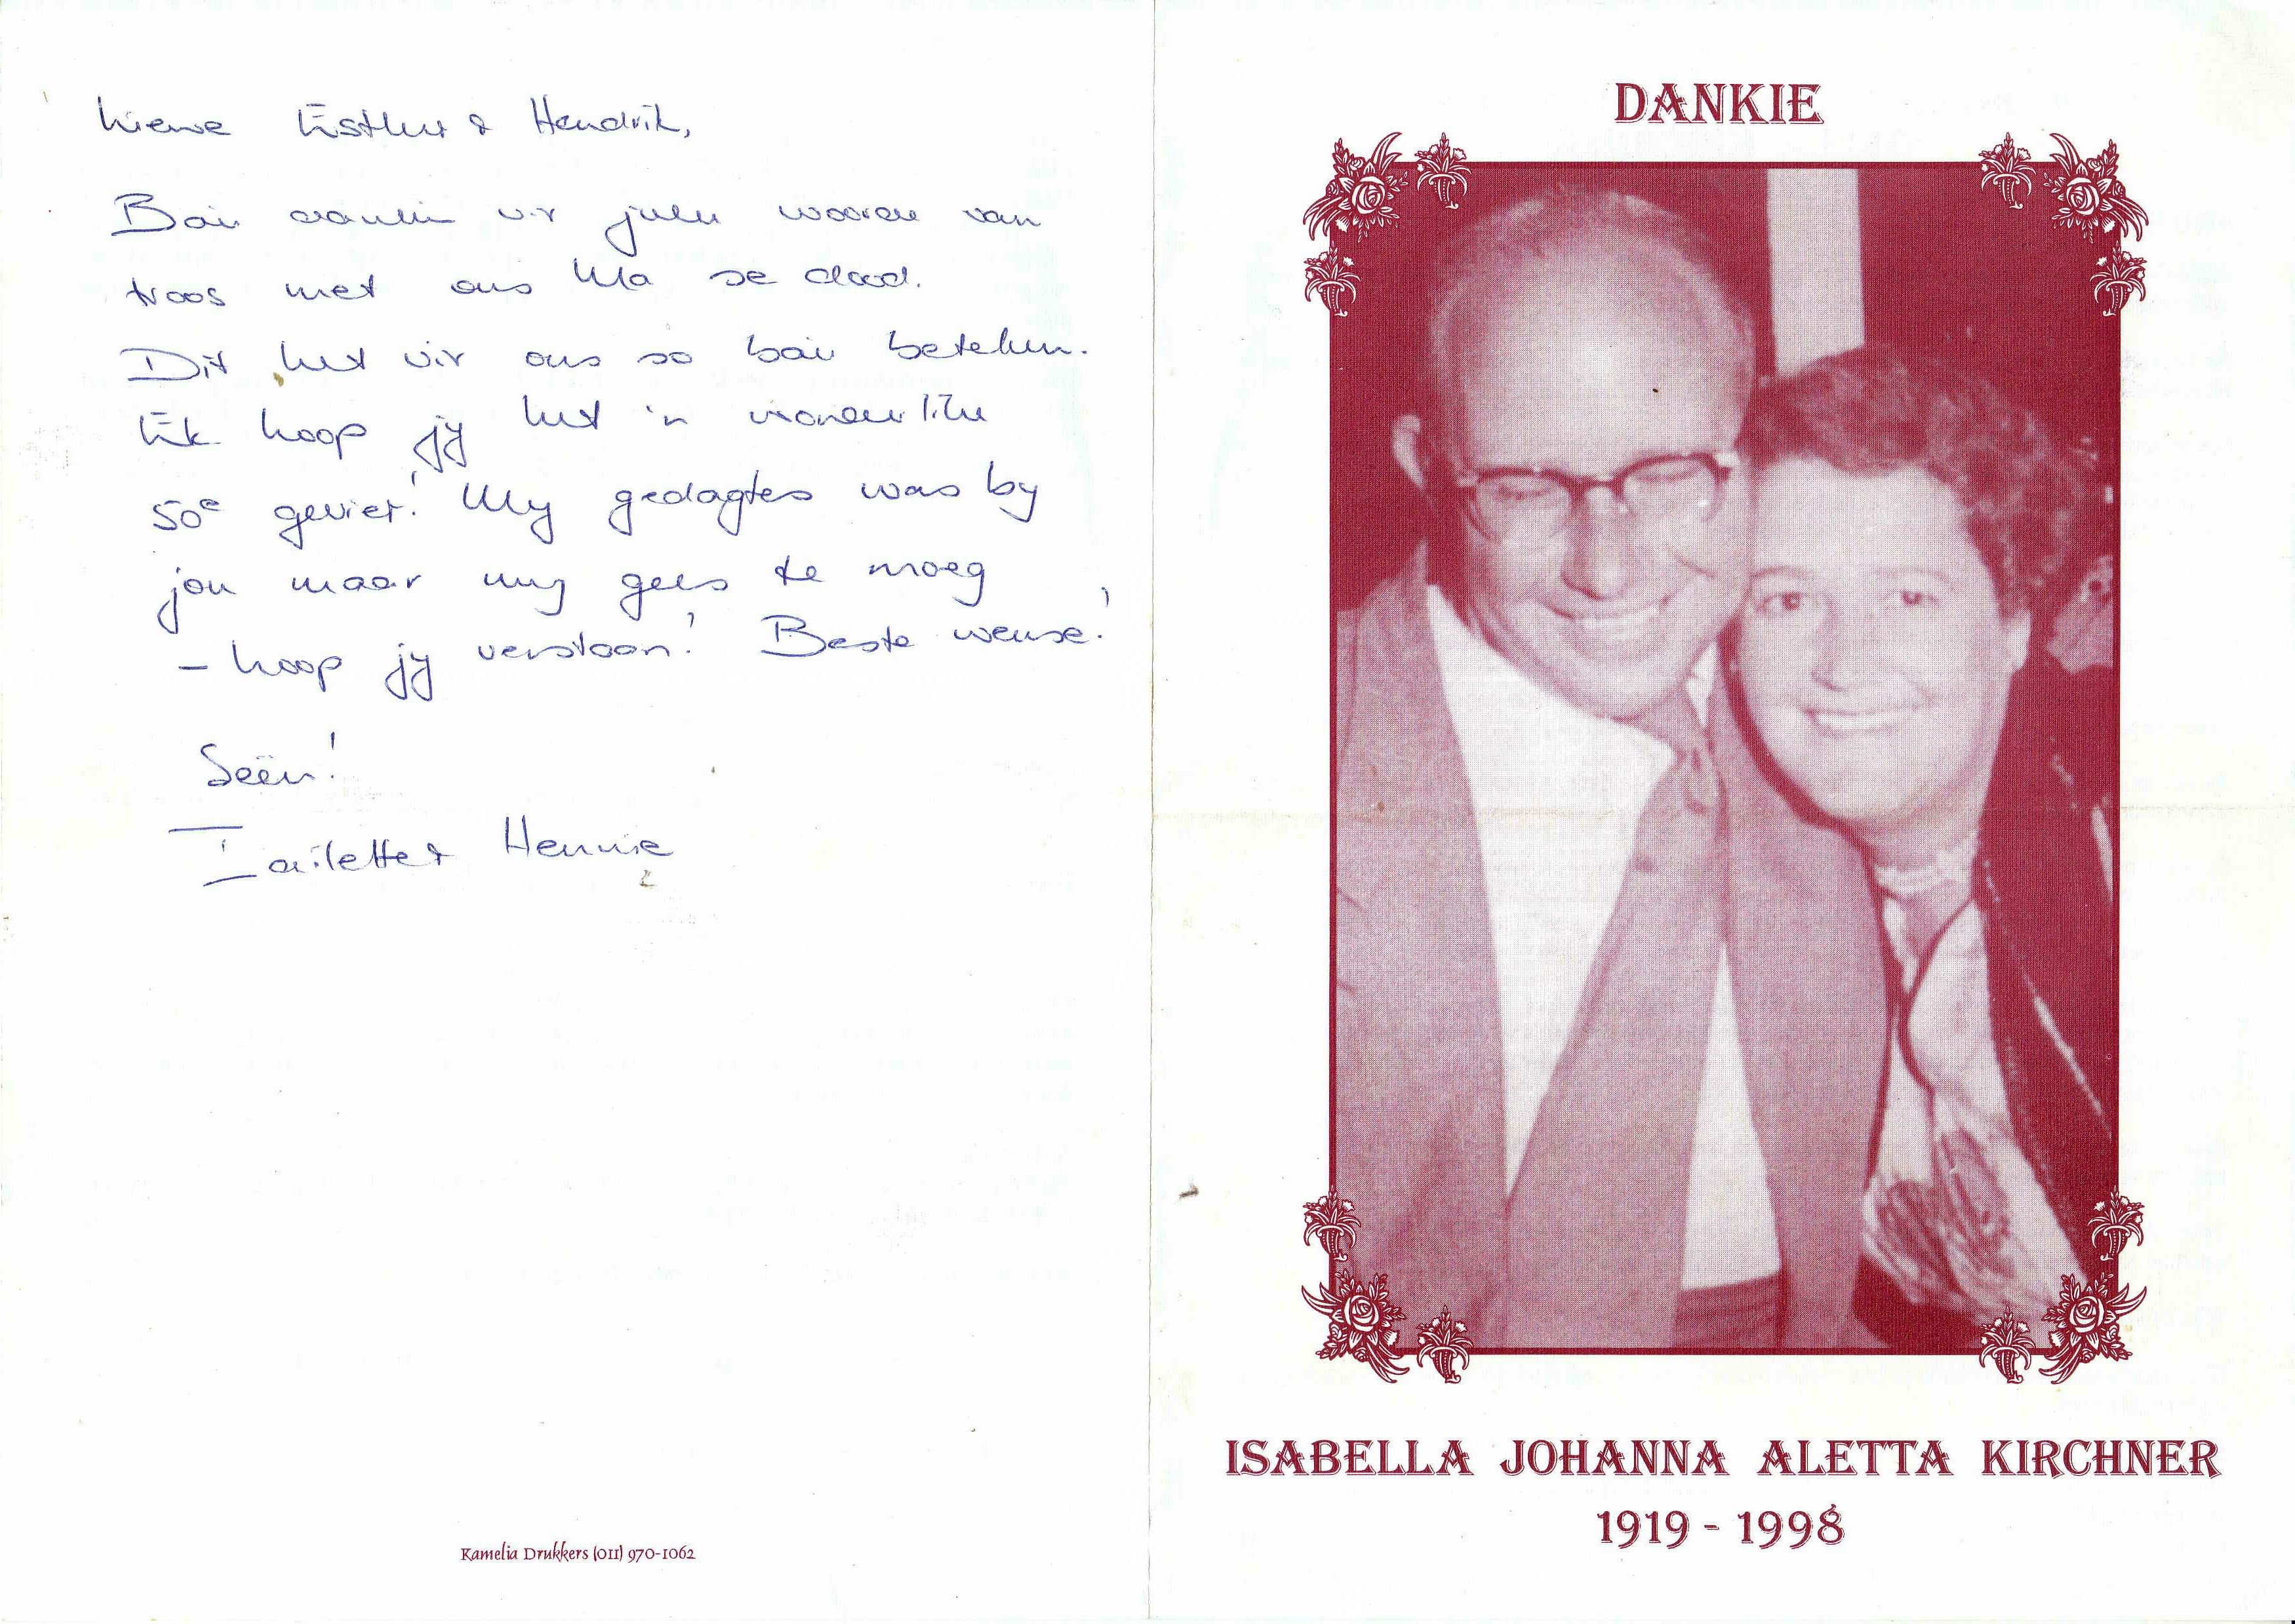 Liewe Esther & Hendrik,
Baie dankie vir julle woorde van
troos met ons Ma se dood.
Dit het vir ons so baie beteken.
Ek hoop jy het 'n wonderlike
50e gevier! My gedagtes was by
jou maar my gees te moeg
- hoop jy verstaan! Beste wense!
Seën!
Hennie
Kamelia Drukkers (011) 970-1062
DANKIE
ISABELLA JOHANNA ALETTA KIRCHNER
1919 - 1998